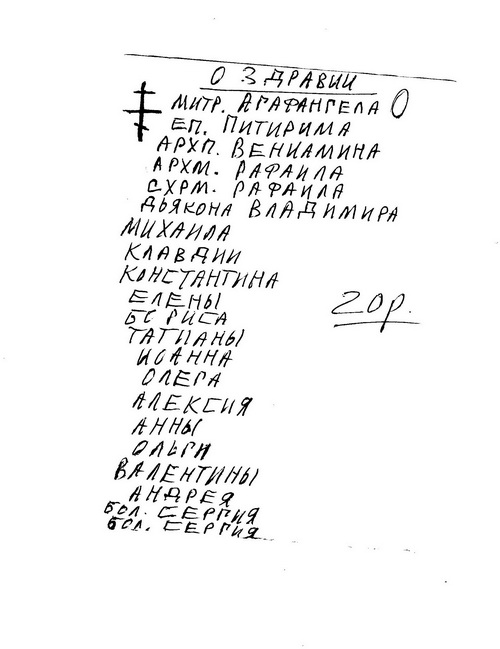 О ЗДРАВИИ
МИТР. АГАФАНГЕЛА О
ЕП. ПИТИРИМА
АРХП. ВЕНИАМИНА
АРХМ. РАФАИЛА
СХРМ. РАФАИЛА
ДЬЯКОНА ВЛАДИМИРА
МИХАИЛА
КЛАВДИИ
КОНСТАНТИНА
ЕЛЕНЫ
БОРИСА
20р.
ТАТИАНЫ
ИОАННА
ОЛЕГА
АЛЕКСИЯ
АННЫ
ОЛЬГИ
ВАЛЕНТИНЫ
АНДРЕЯ
БОЛ. СЕРГИЯ
БОЛ. СЕРГИЯ